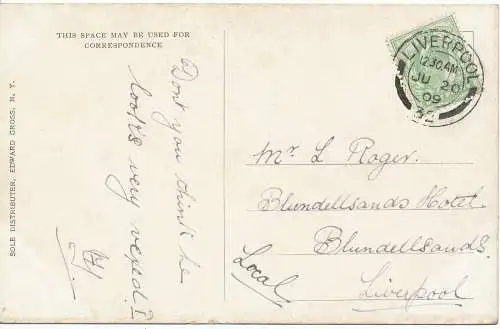 THIS SPACE MAY BE USED FOR
CORRESPONDENCE
Dont you think he
looks very vexed?
SOLE DISTRIBUTER, EDWARD GROSS, N. Y.
LIVERPOOL
12.30AM
JU 20
09
32
Mr L Roger.
Blundellsands Hotel.
Blundellsands.
Local
Liverpool